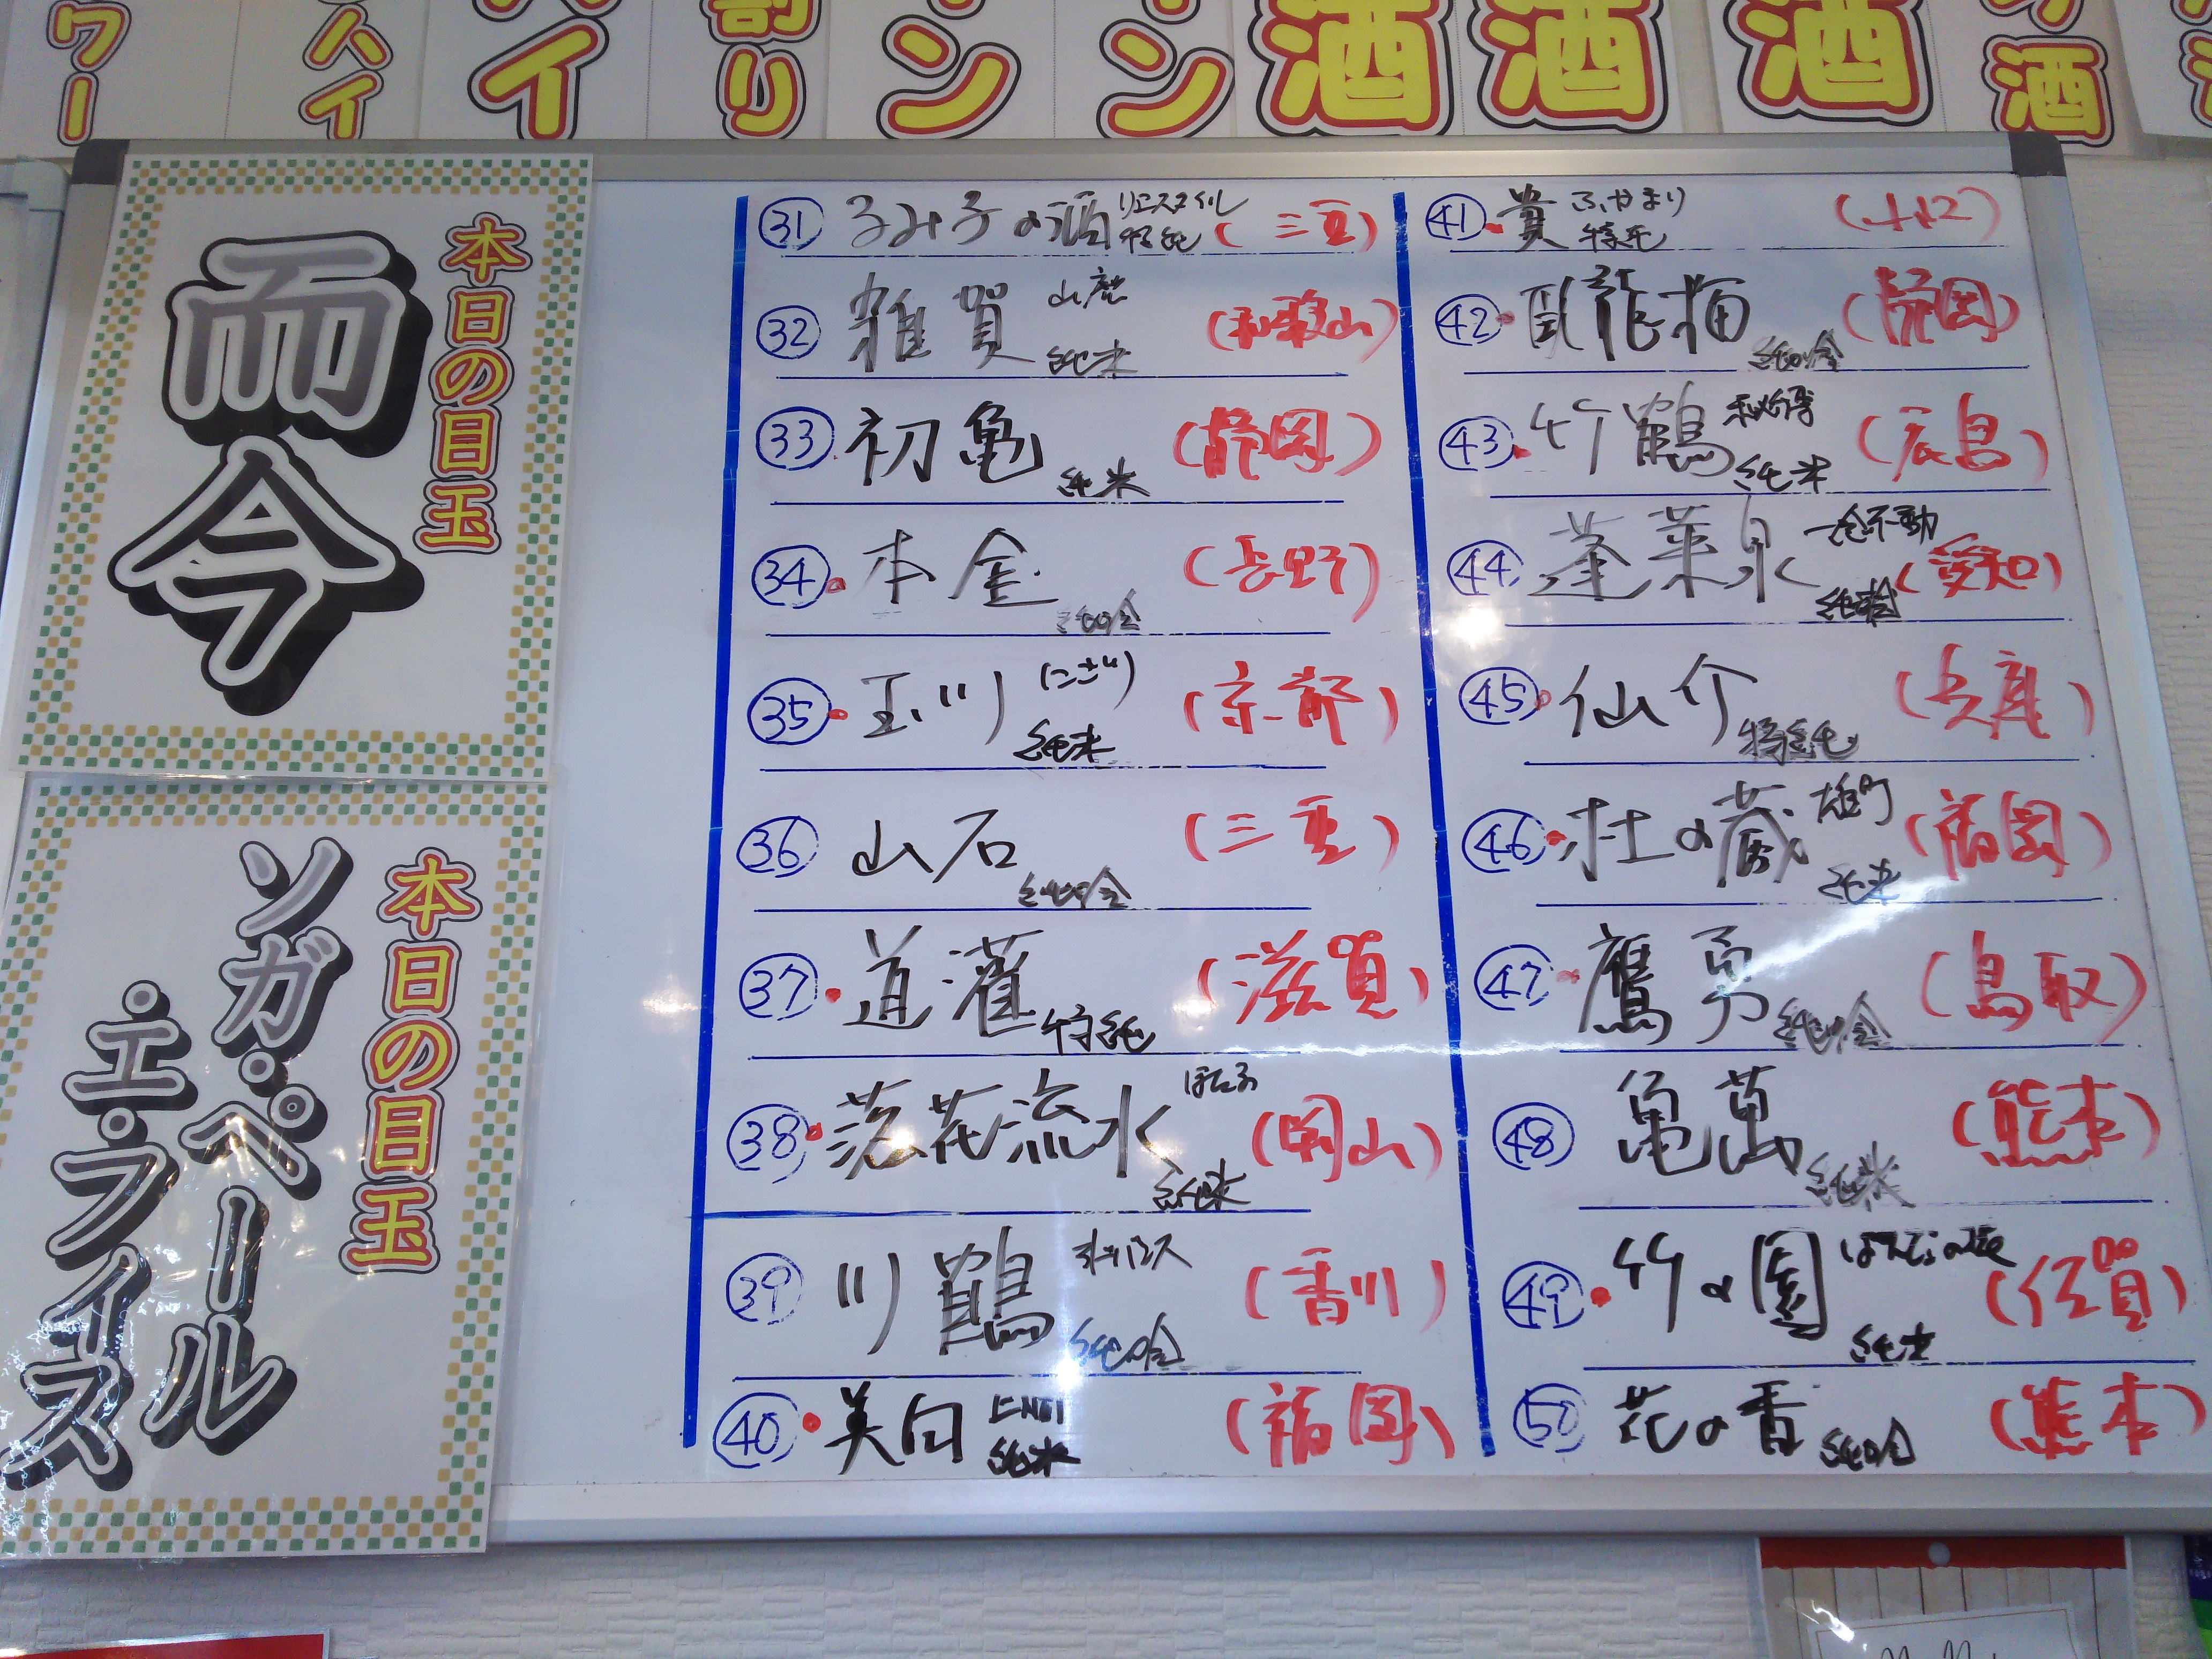 ワー
ハイ
イ
割り
ン
ン
酒
酒
酒
酒
本日の目玉
而今
本日の目玉
ソガ・ペール
エ・フィス
31 るみ子の酒 特純 (三重)
32 雑賀 山廃 純米 (和歌山)
33 初亀 純米 (静岡)
34 本金 純吟 (長野)
35 玉川 にごり 純米 (京都)
36 山石 純吟 (三重)
37 道灌 特純 (滋賀)
38 落花流水 純米 (岡山)
39 川鶴 純吟 (香川)
40 美田 純米 (福岡)
41 貴 ふかまり 特純 (山口)
42 臥龍梅 純吟 (静岡)
43 竹鶴 秘傳 純米 (広島)
44 蓬莱泉 一念不動 (愛知)
45 仙介 特純 (兵庫)
46 杜の蔵 雄町 純米 (福岡)
47 鷹勇 純吟 (鳥取)
48 亀萬 純米 (熊本)
49 竹の園 純米 (佐賀)
50 花の香 純吟 (熊本)